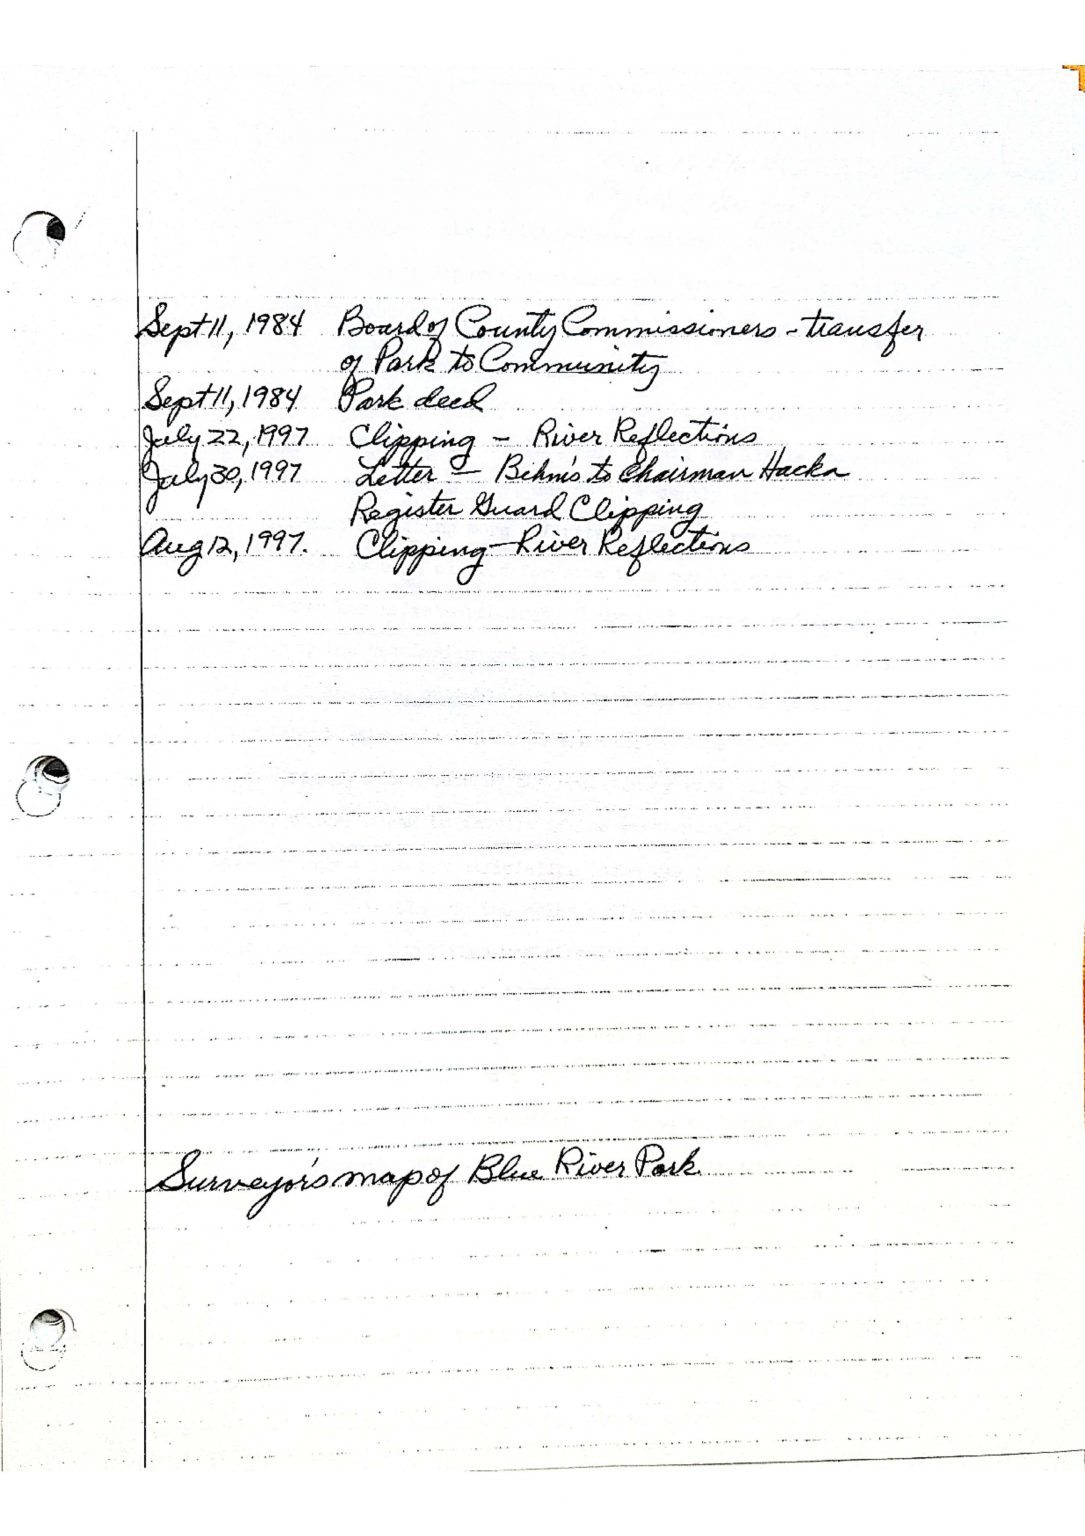 Sept 11, 1984 Board of County Commissioners - transfer
of Park to Community
Sept 11, 1984 Park deed
July 22, 1997 Clipping - River Reflections
July 30, 1997 Letter - Behm's to Chairman Hacka
Register Guard Clipping
Aug 12, 1997. Clipping - River Reflections
Surveyor's map of Blue River Park